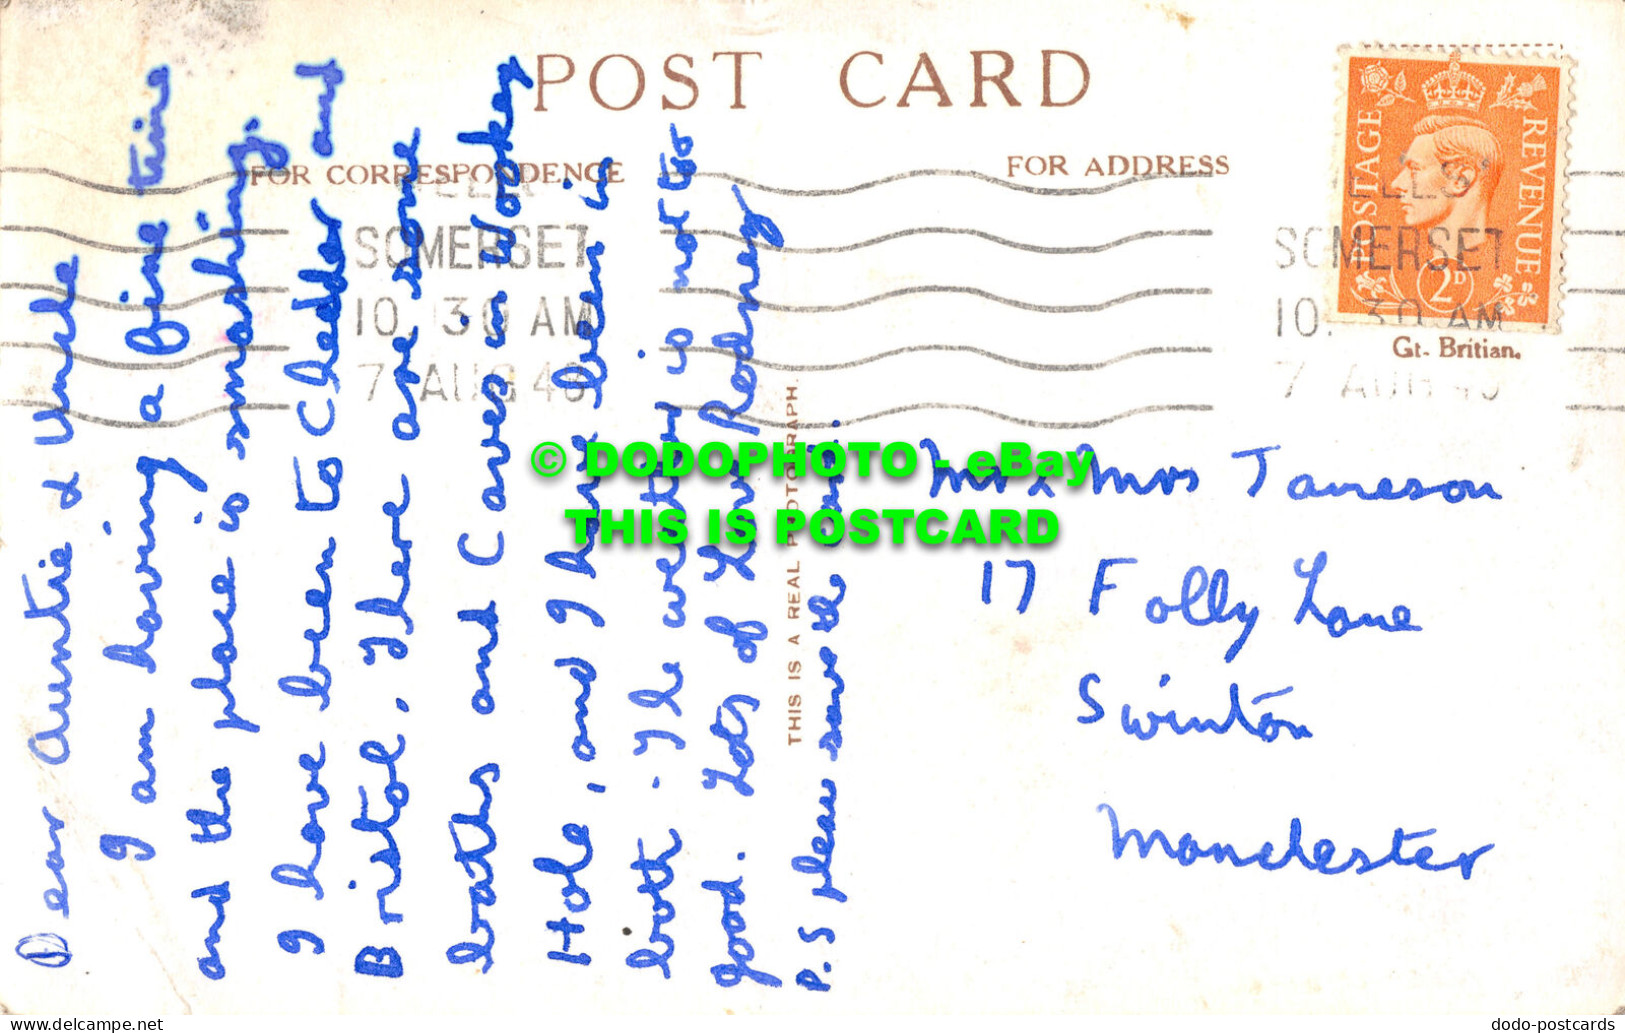 POST CARD
FOR CORRESPONDENCE
FOR ADDRESS
POSTAGE
REVENUE
2D
Gt. Britian.
SOMERSET
10. 30 AM
7 AUG 4
ELLS
SOMERSET
10. 30 AM
7 AUG 4
Dear Auntie & Uncle
I am having a fine time
and the place is smashing.
I have been to Cheddar and
Bristol. There are some
baths and Caves in Wookey
Hole, and I have been in
both. The weather is not too
good. Lots of Love Rodney
P.S please save the card.
THIS IS A REAL PHOTOGRAPH.
Mr & Mrs Jameson
17 Folly Lane
Swinton
Manchester
© DODOPHOTO - eBay
THIS IS POSTCARD
dodo-postcards
https://www.delcampe.net